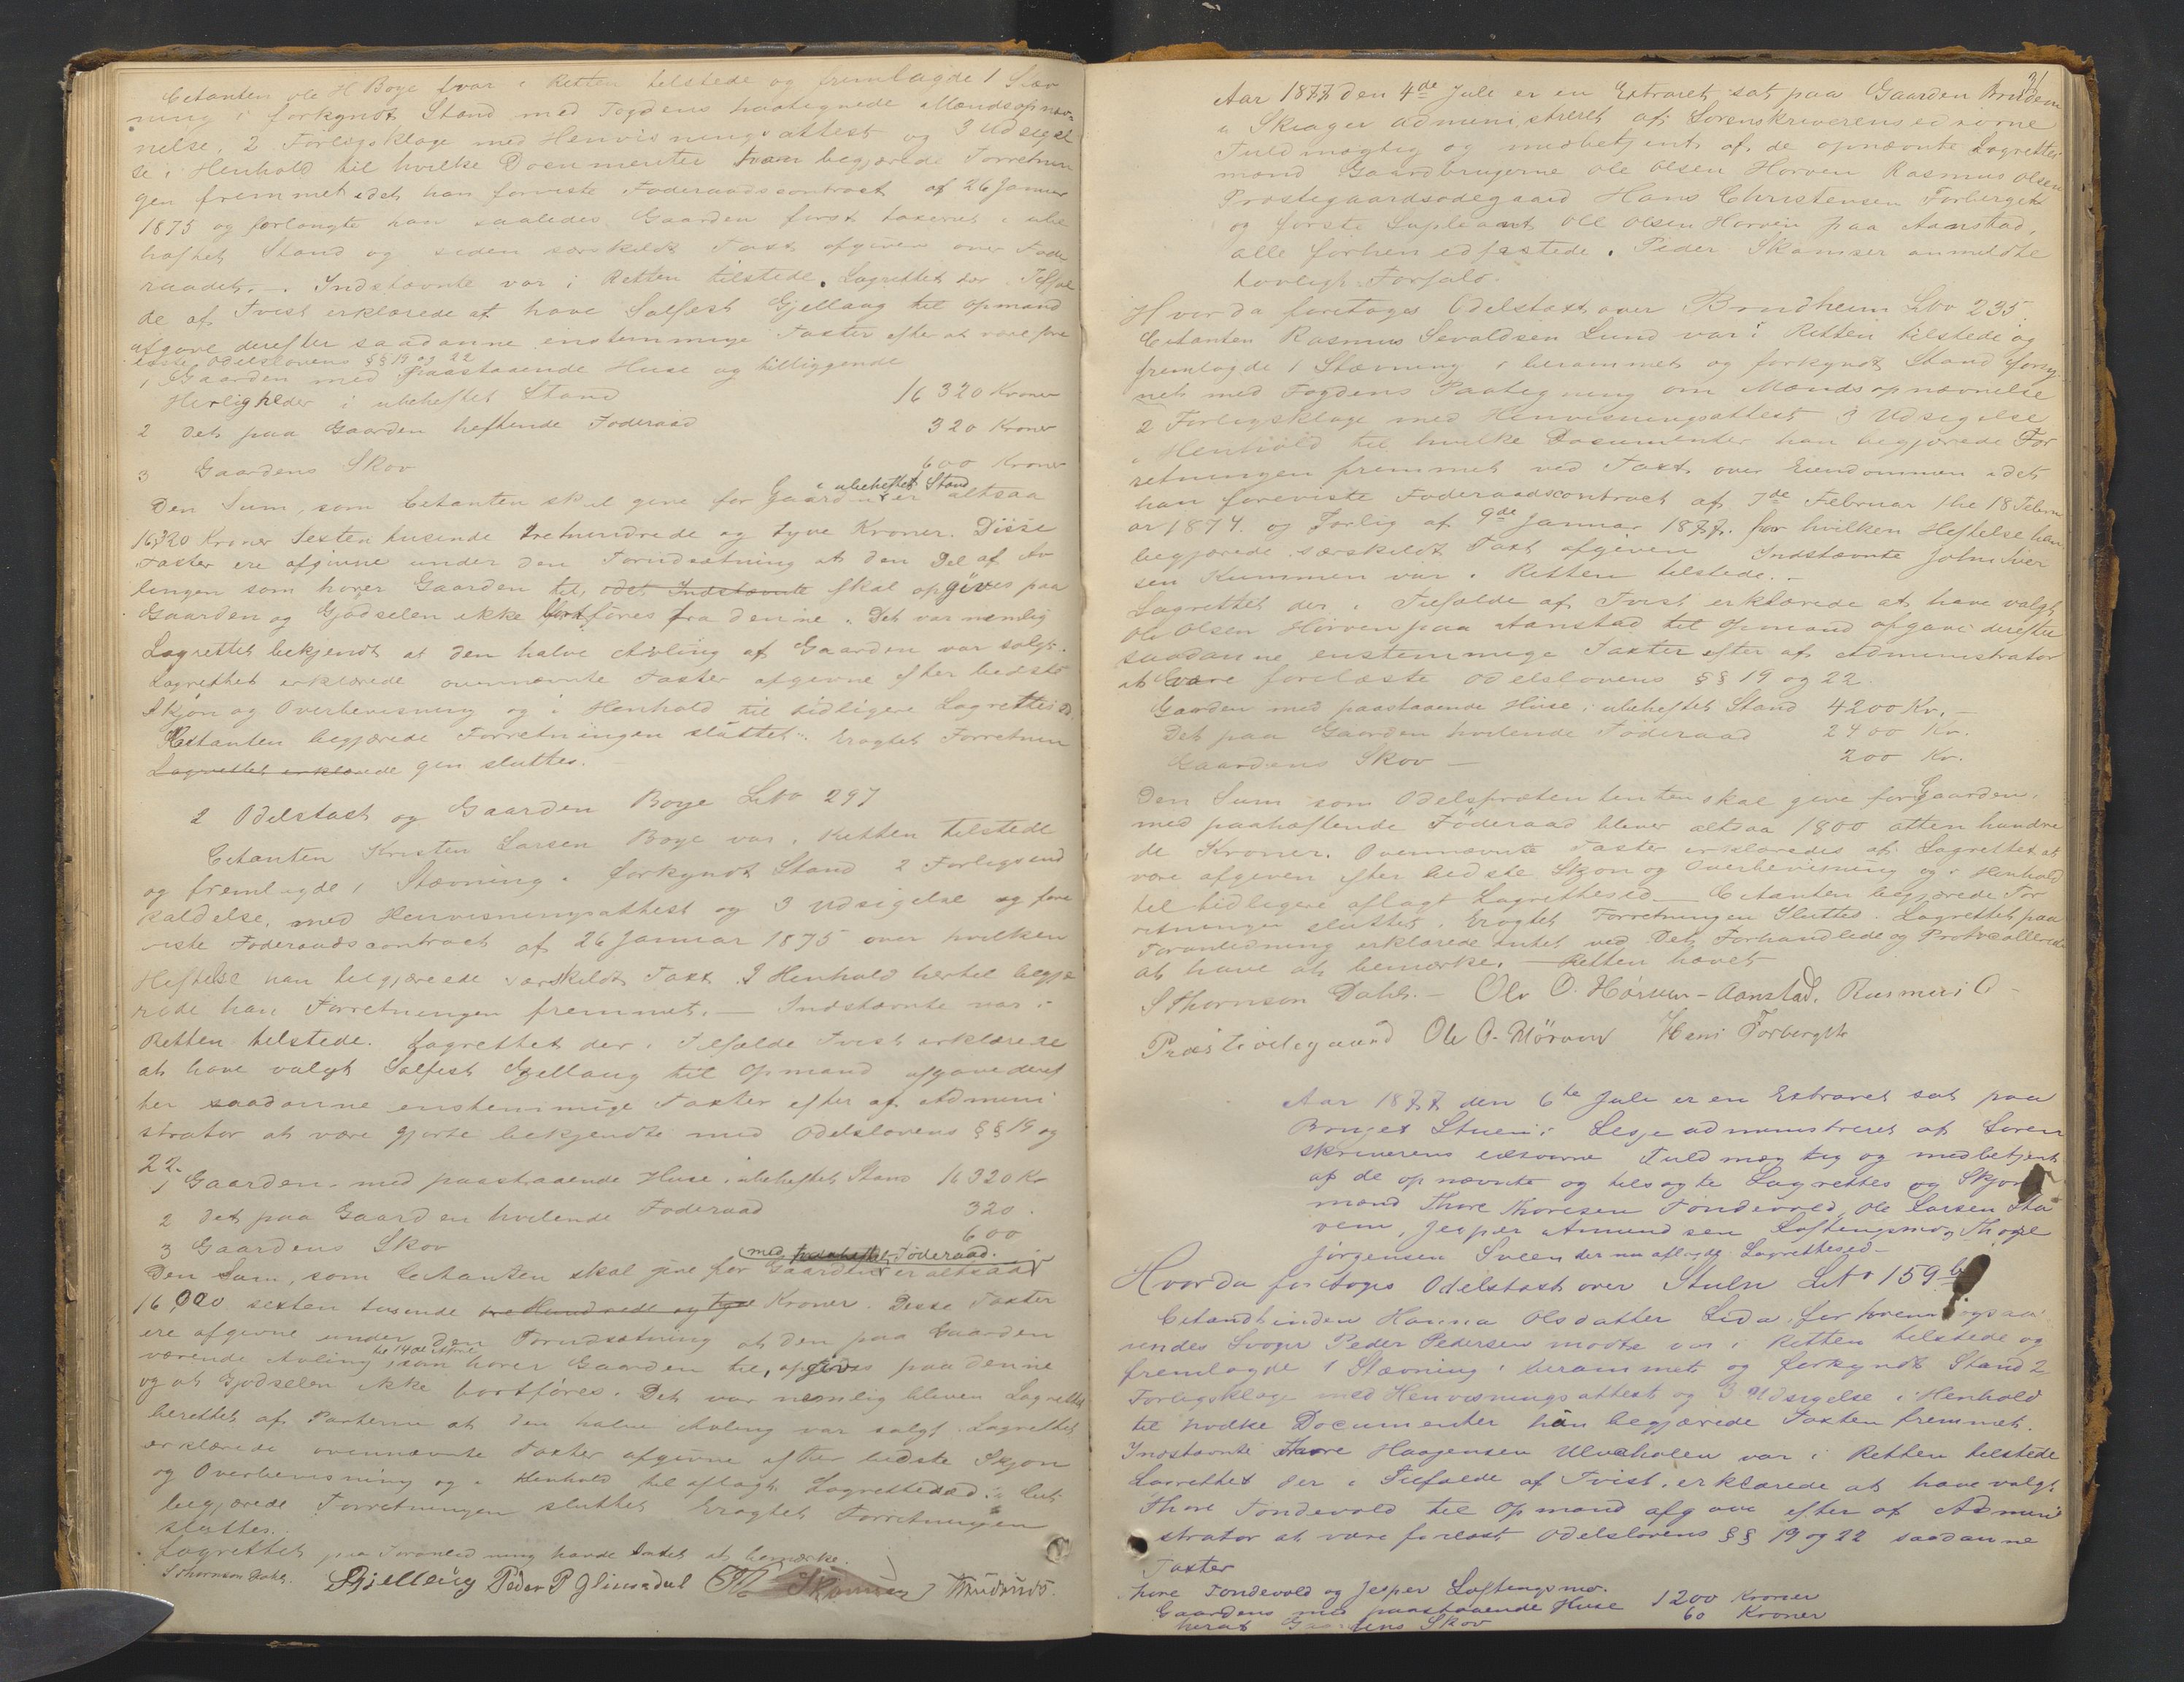 Citanten Ole H Boye var i Retten tilstede og fremlagde 1 Stæv
ning i forkyndt Stand med Fogdens paategnede Mandsopnæv-
nelse, 2 Forligsklage med Henvisningsattest og 3 Udsigel
se i Henhold til hvilke Documenter han begjærede Forretnin
gen fremmet idet han foreviste Föderaadscontract af 26 Januar
1875 og forlangte han saaledes Gaarden først taxeret i ube
heftet Stand og siden særskildt Taxt afgiven over Föde
raadet. - Indstævnte var i Retten tilstede. Lagrettet der i Tilfæl
de af Tvist erklærede at have Salfest Gjellaug til Opmand
afgave derefter saadanne enstemmige Taxter efter at være fore
læste Odelslovens §§ 19 og 22
1 Gaarden med paastaaende Huse og tilliggende
Herligheder i ubeheftet Stand 16320 Kroner
2 det paa Gaarden heftende Foderaad 320 Kroner
3 Gaardens Skov 600 Kroner
i ubeheftet Stand
Den Sum, som Citanten skal give for Gaarden er altsaa
16,320 Kroner Sexten tusende trehundrede og tyve Kroner. Disse
Taxter ere afgivne under den Forudsætning at den Del af Av
lingen som hører Gaarden til, det Indstævnte skal opgives paa
Gaarden og Gjødselen ikke bortføres fra denne. Det var nemlig
Lagrettet bekjendt at den halve Avling af Gaarden var solgt.
Lagrettet erklærede ovennævnte Taxter afgivne efter bedste
Skjøn og Overbevisning og i Henhold til tidligere Lagrettesed
Citanten begjærede Forretningen sluttet. Eragtet Forretnin
Lagrettet erklærede gen sluttes.
2 Odelstaxt og Gaarden Boye LNo 297
Citanten Kristen Larsen Boye var i Retten tilstede
og fremlagde 1 Stævning i forkyndt Stand 2 Forligsind
kaldelse, med Henvisningsattest og 3 Udsigelse og fore
viste Foderaadscontract af 26 Januar 1875 over hvilken
Heftelse han begjærede særskildt Taxt. I Henhold hertil begjæ
rede han Forretningen fremmet. - Indstævnte var i
Retten tilstede. Lagrettet der i Tilfælde Tvist erklærede
at have valgt Salfest Gjellaug til Opmand afgave deref
ter saadanne enstemmige Taxter efter af Admini
strator at være gjorte bekjendte med Odelslovens §§ 19 og
22.
1 Gaarden med paastaaende Huse i ubeheftet Stand 16320 Kr
2 det paa Gaarden hvilende Foderaad 320.
3 Gaardens Skov 600
med Föderaad.
Den Sum, som Citanten skal give for Gaarden er altsaa
16,000 sexten tusende tre Hundrede og tyve Kroner. Disse Taxter
ere afgivne under den Forudsætning at den paa Gaarden
værende Avling, som hører Gaarden til, opgives paa denne
og at Gjødselen ikke bortføres. Det var nemlig bleven Lagrettet
berettet af Parterne at den halve Avling var solgt. Lagrettet
erklærede ovennævnte Taxter afgivne efter bedste Skjøn
og Overbevisning og i Henhold til aflagt Lagrettesed. Cit.
begjærede Forretningen sluttet Eragtet Forretningen
sluttes.
Lagrettet paa Foranledning havde Intet at bemærke.
SThornson Dahl. SGjellaug Peder P Glimsdal Skamser
31
Aar 1877 den 4de Juli er en Extraret sat paa Gaarden Brudem
i Skiager administreret af Sorenskriverens edsvorne
Fuldmægtig og medbetjent af de opnævnte Lagrettes
mænd Gaardbrugerne Ole Olsen Horven Rasmus Olsen
Præstegaardsødegaard Hans Christensen Forbergsk
og første Supleant Ole Olsen Horven paa Aanstad,
alle forhen edfæstede. Peder Skamser anmeldte
lovligt Forfald.
Hvorda foretoges Odelstaxt over Brudheim LNo 235
Citanten Rasmus Sevaldsen Lund var i Retten tilstede og
fremlagde 1 Stævning i berammet og forkyndt Stand forsy
net med Fogdens Paategning om Mandsopnævnelse
2 Forligsklage med Henvisningsattest 3 Udsigelse
i Henhold til hvilke Documenter han begjærede For
retningen fremmet ved Taxt over Eiendommen idet
han foreviste Foderaadscontract af 7de Februar thl 18 Febru
ar 1874. og Forlig af 9de Januar 1877. for hvilken Heftelse han
begjærede særskildt Taxt afgiven Indstævnte John Iver
sen Kummen var i Retten tilstede. -
Lagrettet der i Tilfælde af Tvist erklærede at have valgt
Ole Olsen Horven paa Aanstad til Opmand afgave derefter
saadanne enstemmige Taxter efter af Administrator
at være forelæste Odelslovens §§ 19 og 22.
Gaarden med paastaaende Huse i ubeheftet Stand 4200 Kr. -
Det paa Gaarden hvilende Föderaad 2400 Kr.
Gaardens Skov - 200 Kr.
Den Sum som Odelsprætendenten skal give for Gaarden
med paaheftende Föderaad bliver altsaa 1800 atten hundre
de Kroner. Ovennævnte Taxter erklæredes af Lagrettet at
være afgiven efter bedste Skjøn og Overbevisning og i Henhold
til tidligere aflagt Lagrettesed - Citanten begjærede For
retningen sluttet. Eragtet Forretningen Sluttes. Lagrettet paa
Foranledning erklærede intet ved det Forhandlede og Protocollerede
at have at bemærke. - Retten hævet
SThornson Dahl. - Ole O. Hörven - Aanstad. Rasmus O -
Præsteödegaard Ole O. Hörven Hans Forbergsk
Aar 1877 den 6te Juli er en Extraret sat paa
Brujet Stuen i Lesje administreret af Soren
skriverens edsvorne Fuldmægtig og medbetjent
af de opnævnte og tilsagte Lagrettes og Skjøns
mænd Thore Thoresen Tondevold, Ole Larsen Sta
vem, Jesper Amundsen Loftengsmo, Thore
Jørgensen Sveen der nu aflagde Lagrettesed -
Hvorda foretoges Odelstaxt over Stuln LNo 159 b
Citantinden Hanna Olsdatter Lida, for hvem
hendes Svoger Peder Pedersen mødte var i Retten tilstede og
fremlagde 1 Stævning i berammet og forkyndt Stand 2
Forligsklage med Henvisningsattest og 3 Udsigelse i Henhold
til hvilke Documenter han begjærede Taxten fremmet.
Indstævnte Thore Haagensen Ulveholen var i Retten tilstede
Lagrettet der i Tilfælde af Tvist, erklærede at have valgt
Thore Tondevold til Opmand afgave efter af Admini
strator at være forelæst Odelslovens §§ 19 og 22 saadanne
Taxter
Thore Tondevold og Jesper Loftengsmo.
Gaardens med paastaaende Huse 1200 Kroner
heraf Gaardens Skov 60 Kroner